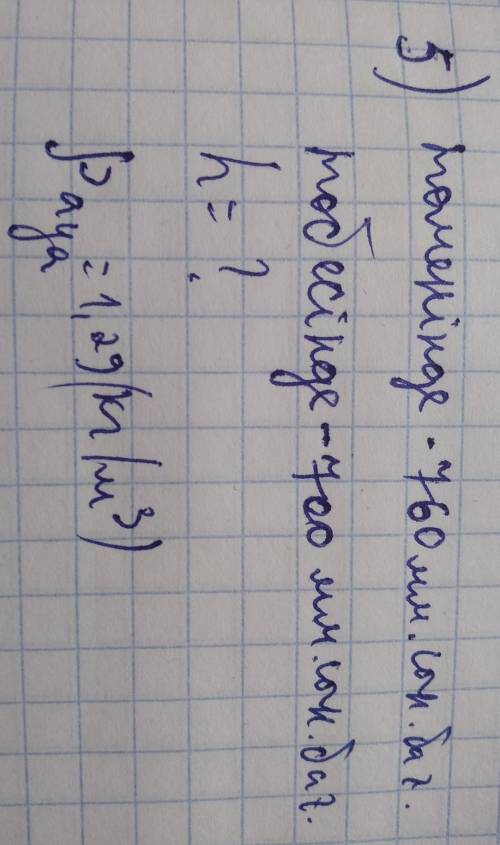 5) төменінде - 760 мм.сын.бағ.
төбесінде - 700 мм.сын.бағ.
h = ?
ρ ауа = 1,29 (кг/м³)